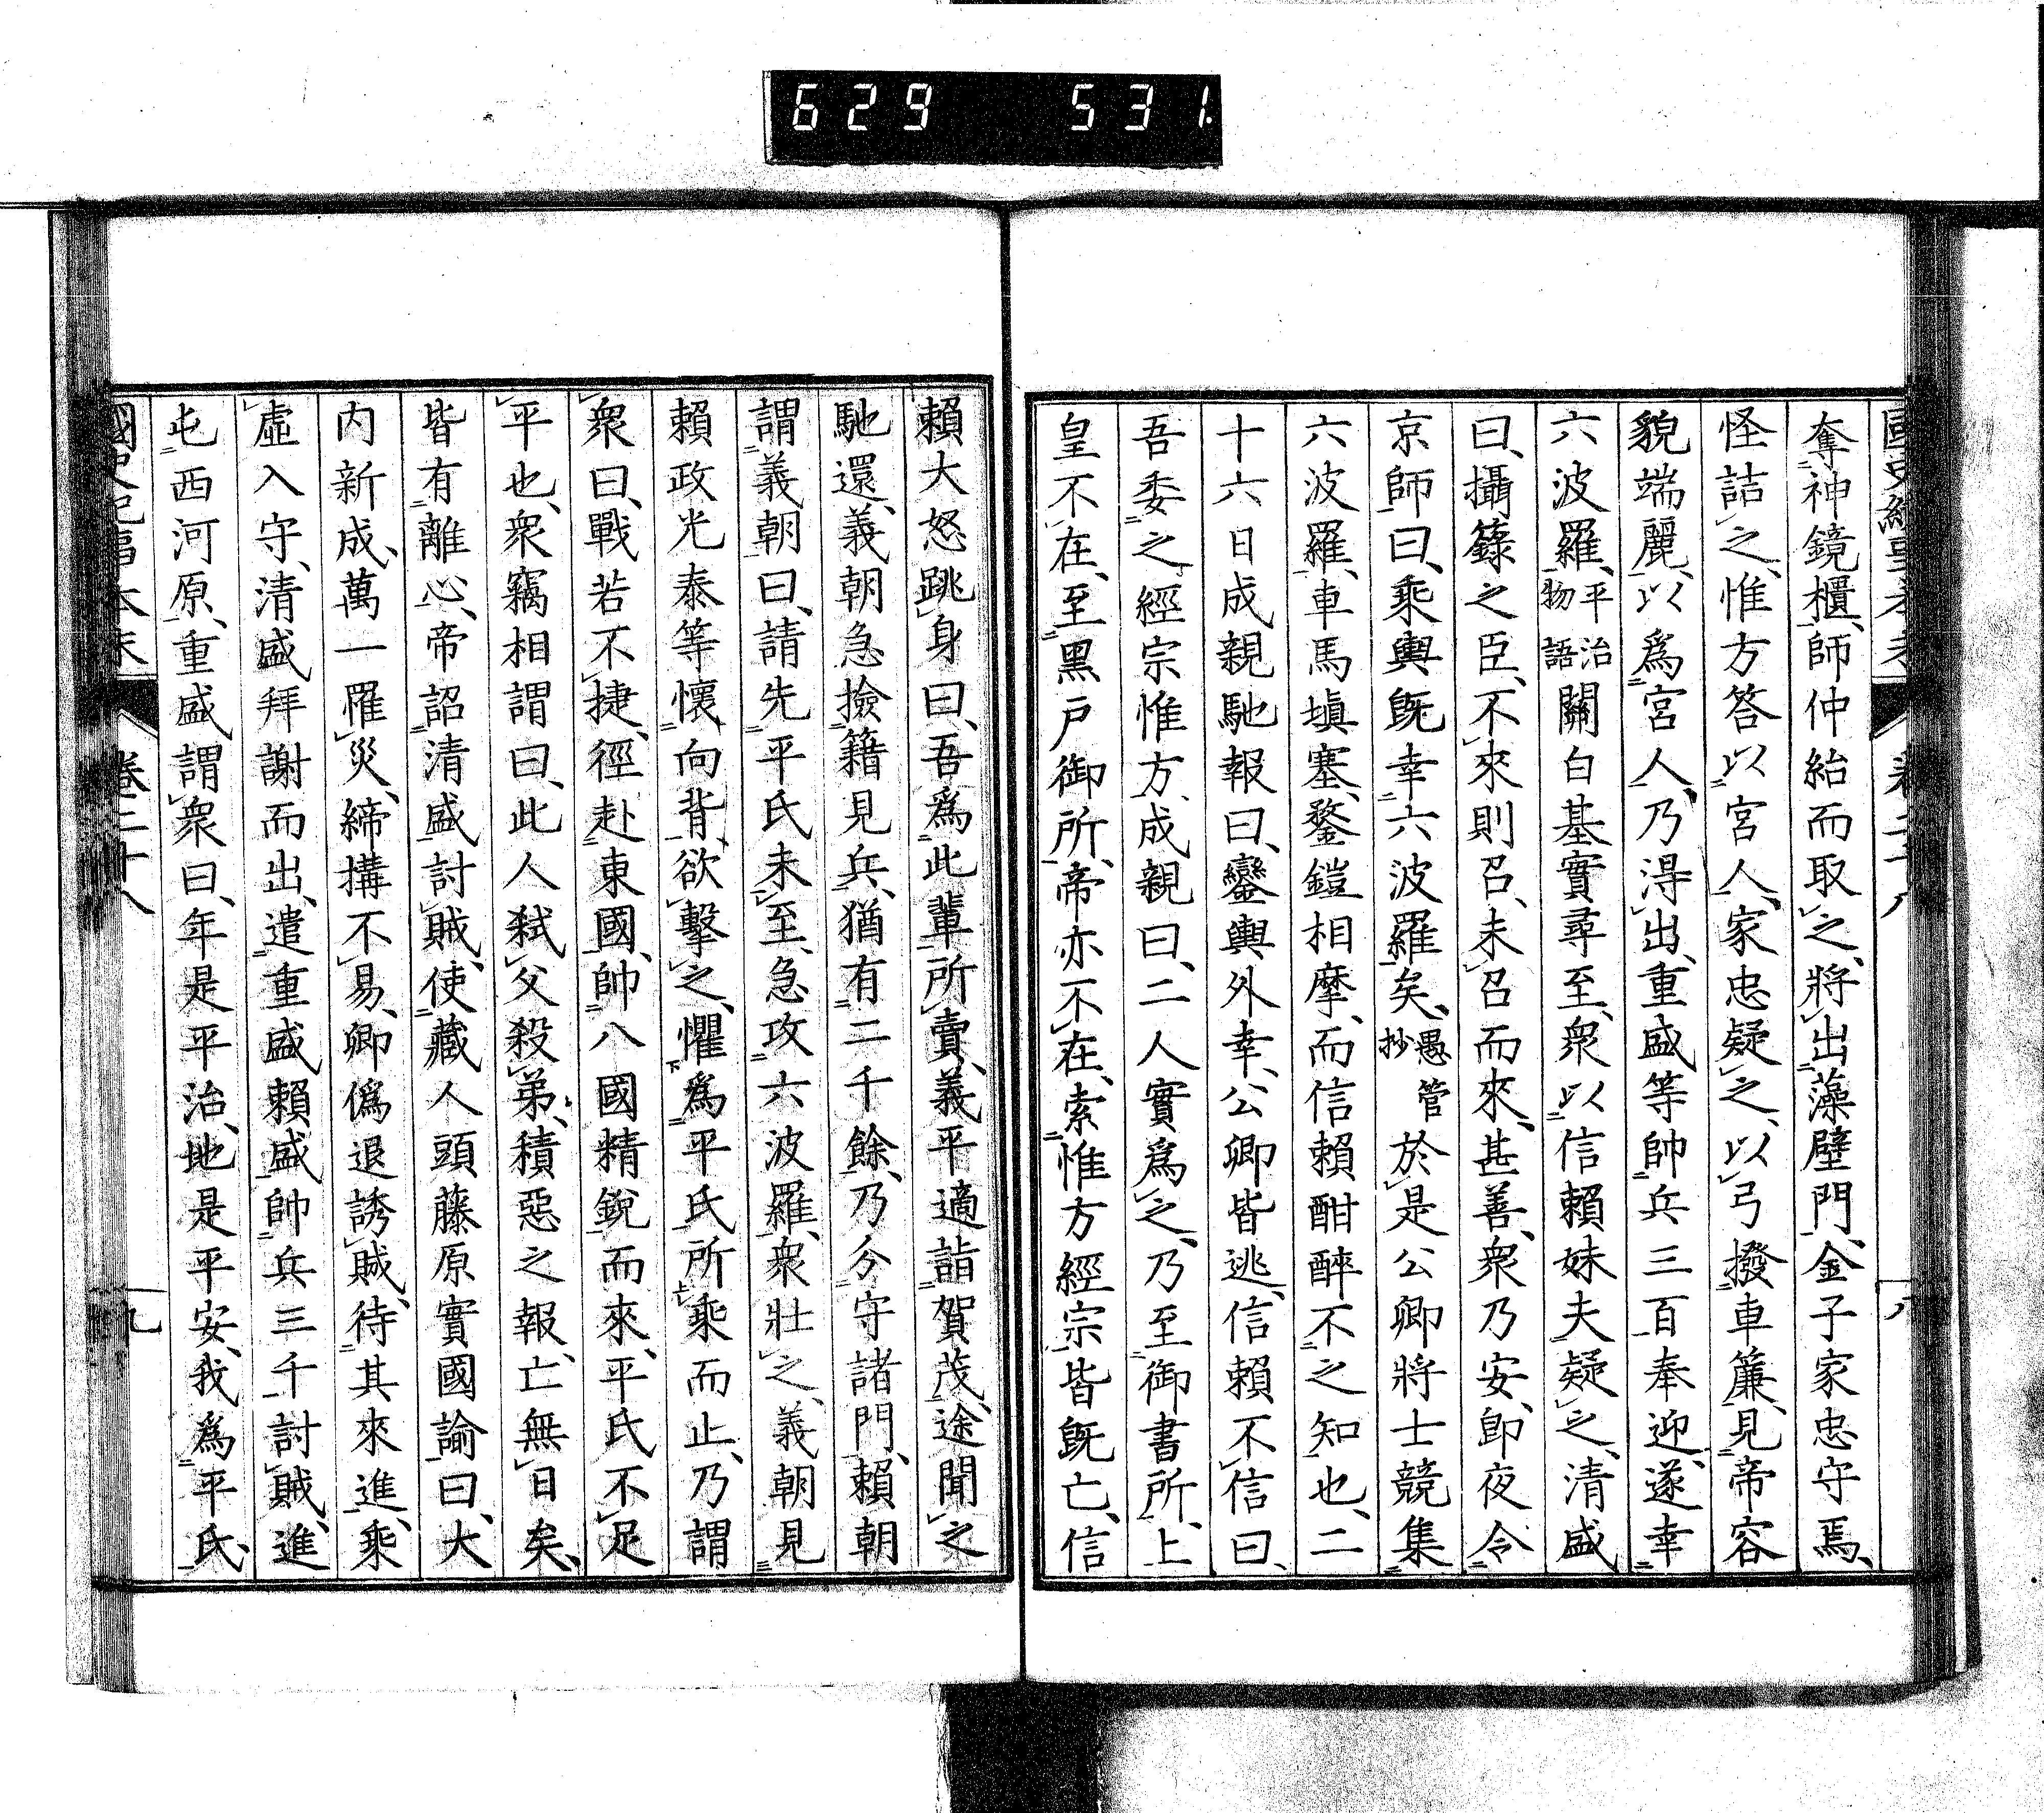 629 531.
奪神鏡櫃、師仲紿而取之、將出藻壁門、金子家忠守焉、
怪詰之、惟方答以宮人、家忠疑之、以弓撥車簾、見帝容
貌端麗、以爲宮人、乃得出、重盛等帥兵三百奉迎、遂幸
六波羅、平治物語關白基實尋至、衆以信賴妹夫疑之、清盛
曰、攝籙之臣、不來則召、未召而來、甚善、衆乃安、卽夜令
京師曰、乘輿旣幸六波羅矣、愚管抄於是公卿將士競集
六波羅、車馬塡塞、鍪鎧相摩、而信賴酣醉不之知也、二
十六日成親馳報曰、鑾輿外幸、公卿皆逃、信賴不信曰、
吾委之經宗惟方、成親曰、二人實爲之、乃至御書所、上
皇不在、至黑戸御所、帝亦不在、索惟方經宗皆旣亡、信
賴大怒跳身曰、吾爲此輩所賣、義平適詣賀茂、途聞之
馳還、義朝急撿籍見兵、猶有二千餘、乃分守諸門、賴朝
謂義朝曰、請先平氏未至、急攻六波羅、衆壯之、義朝見
賴政光泰等懷向背、欲擊之、懼爲平氏所乘而止、乃謂
衆曰、戰若不捷、徑赴東國、帥八國精銳而來、平氏不足
平也、衆竊相謂曰、此人弑父殺弟、積惡之報、亡無日矣、
皆有離心、帝詔清盛討賊、使藏人頭藤原實國諭曰、大
内新成、萬一罹災、締搆不易、卿僞退誘賊、待其來進、乘
虛入守、清盛拜謝而出、遣重盛賴盛帥兵三千討賊、進
屯西河原、重盛謂衆曰、年是平治、地是平安、我爲平氏、
國史紀事本末 卷二十八 九